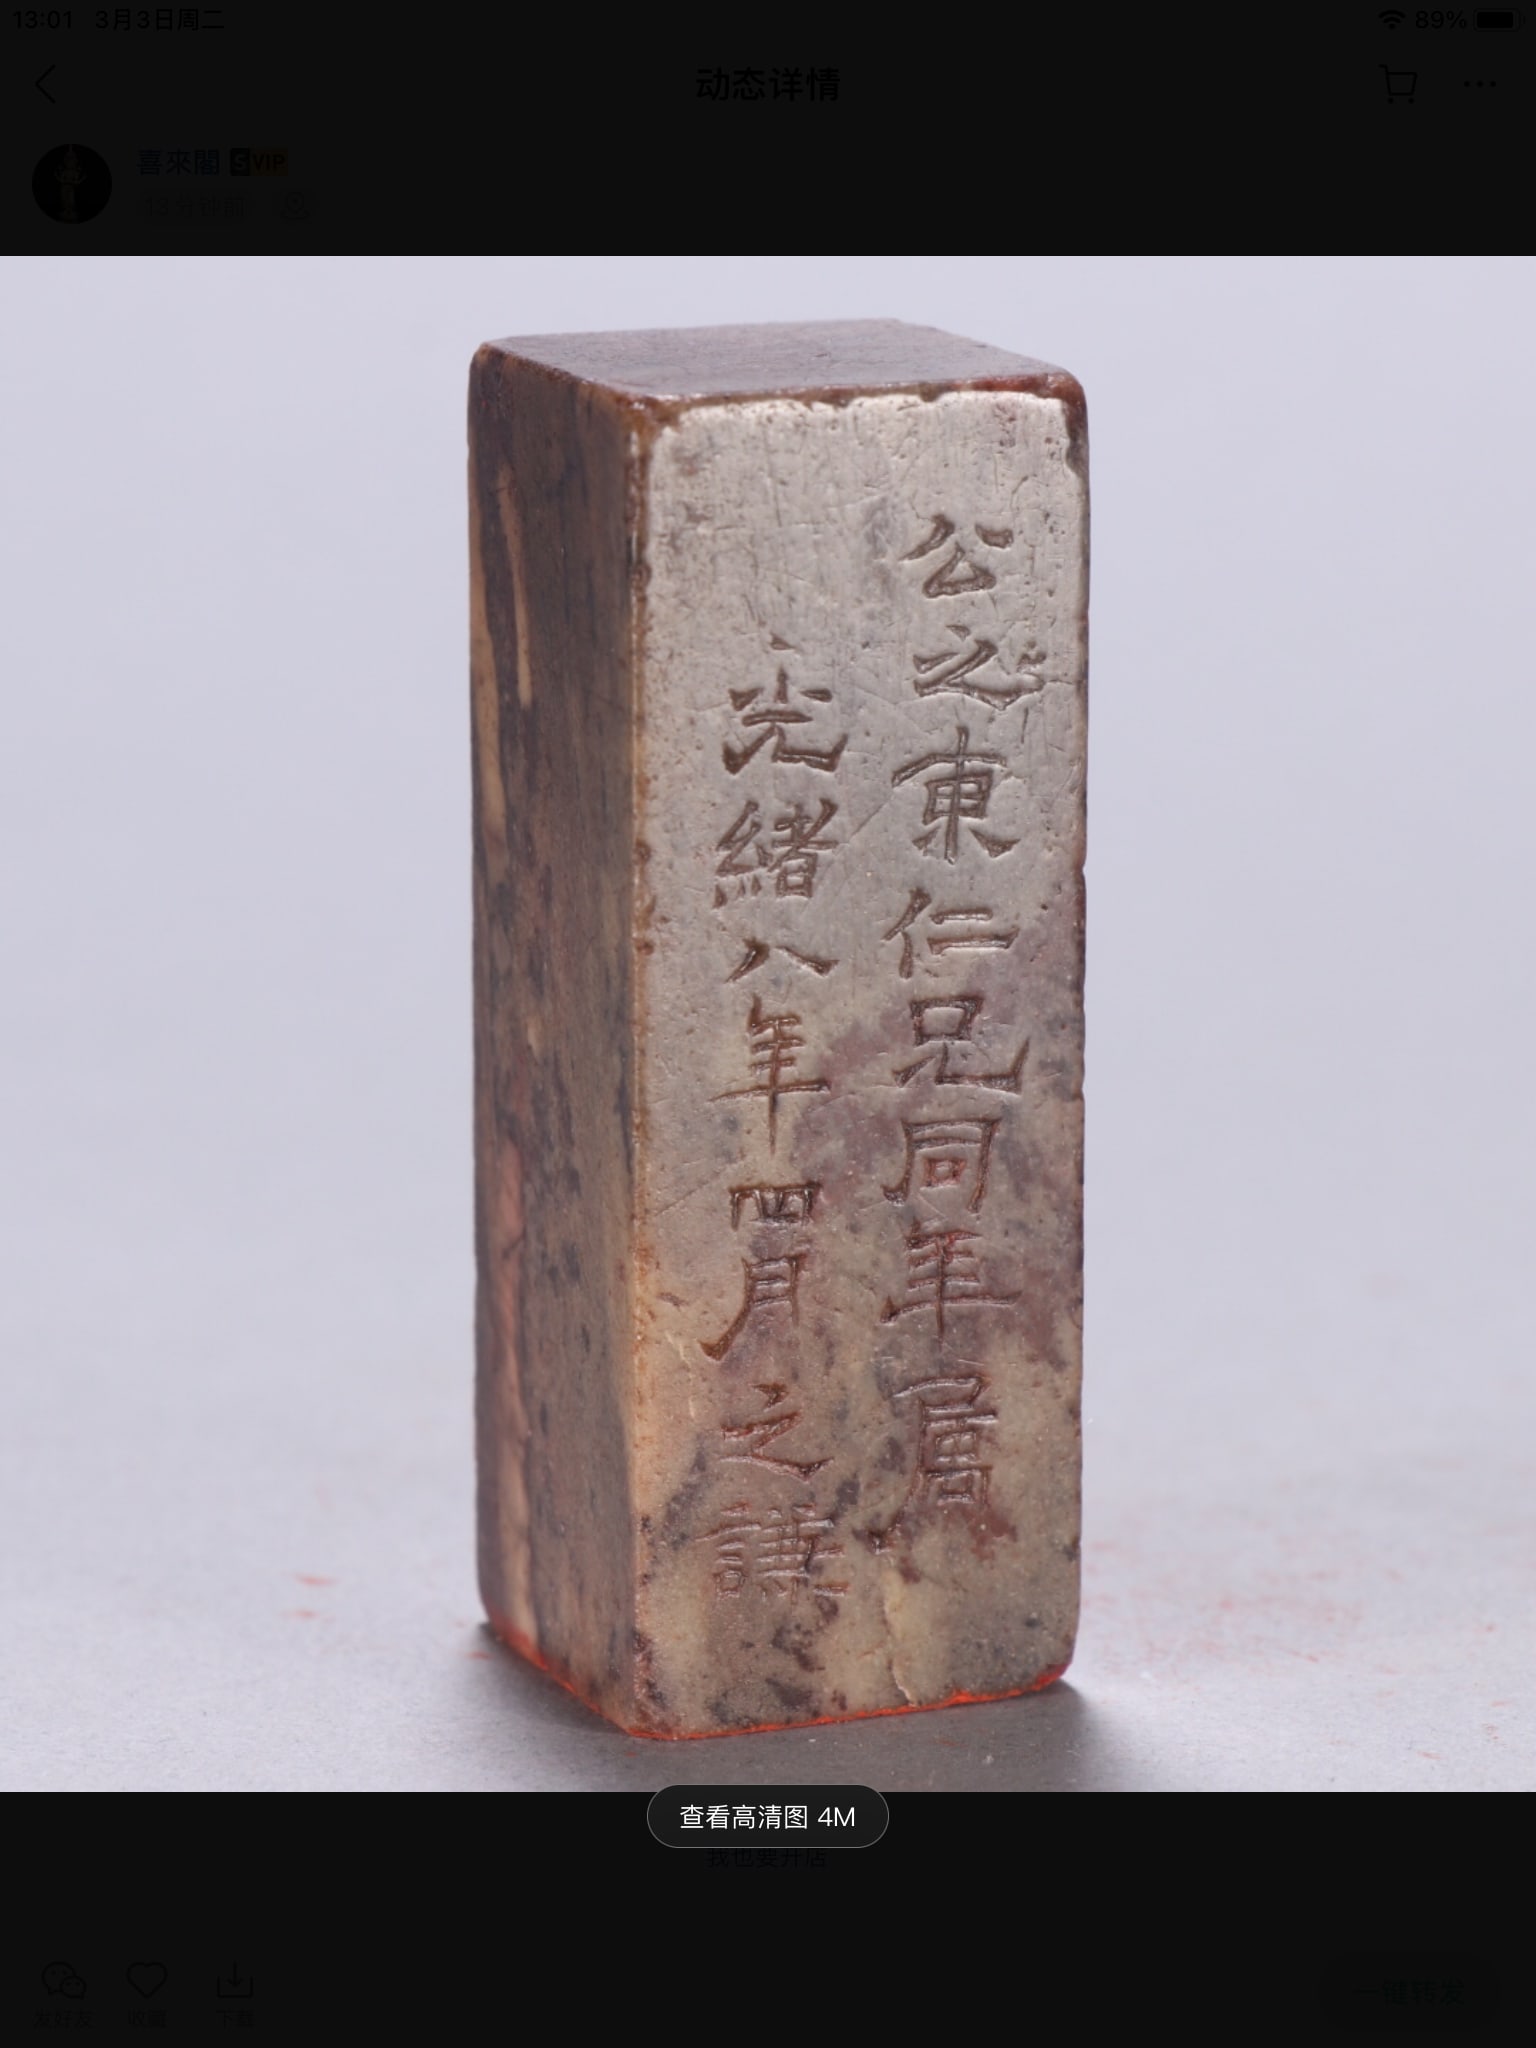 13:01 3月3日周二
89%
动态详情
喜來閣 SVIP
13分钟前
公之東仁兄同年屬
光緒八年四月之謙
查看高清图 4M
我也要开店
发好友
收藏
下载
一键转发